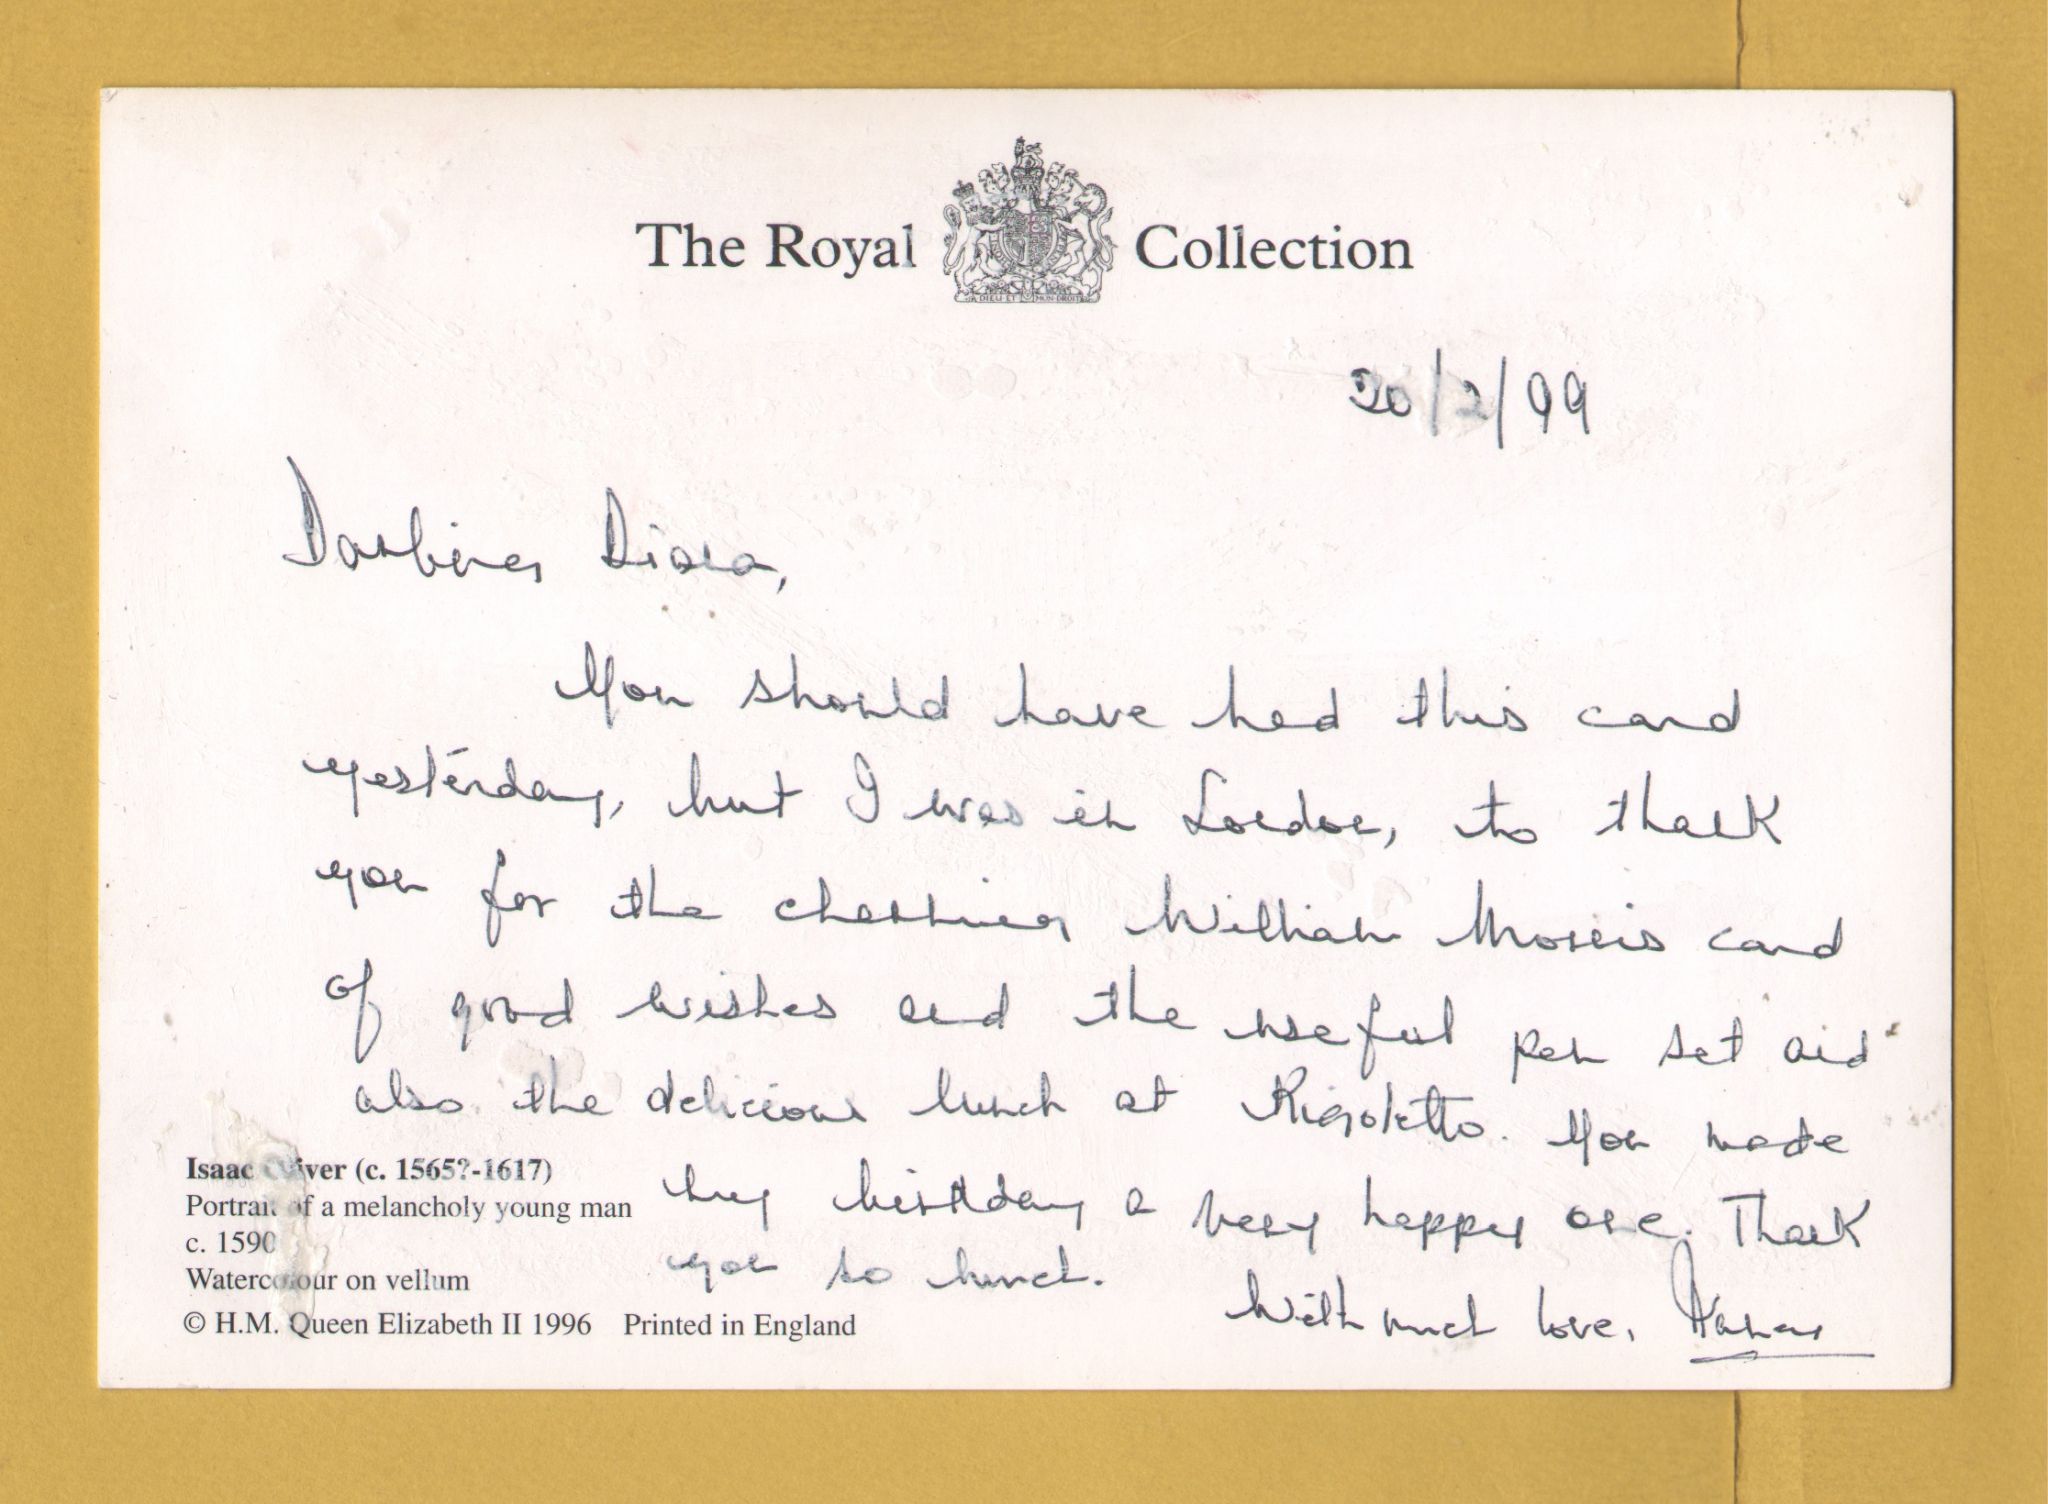 The Royal Collection
A DIEU ET MON DROIT
20/2/99
Darling Diana,
You should have had this card
yesterday, but I was in London, to thank
you for the charming William Morris card
of good wishes and the useful pen set and
also the delicious lunch at Rigoletto. You made
my birthday a very happy one. Thank
you so much.
With much love,
Isaac Oliver (c. 1565?-1617)
Portrait of a melancholy young man
c. 1590
Watercolour on vellum
© H.M. Queen Elizabeth II 1996 Printed in England